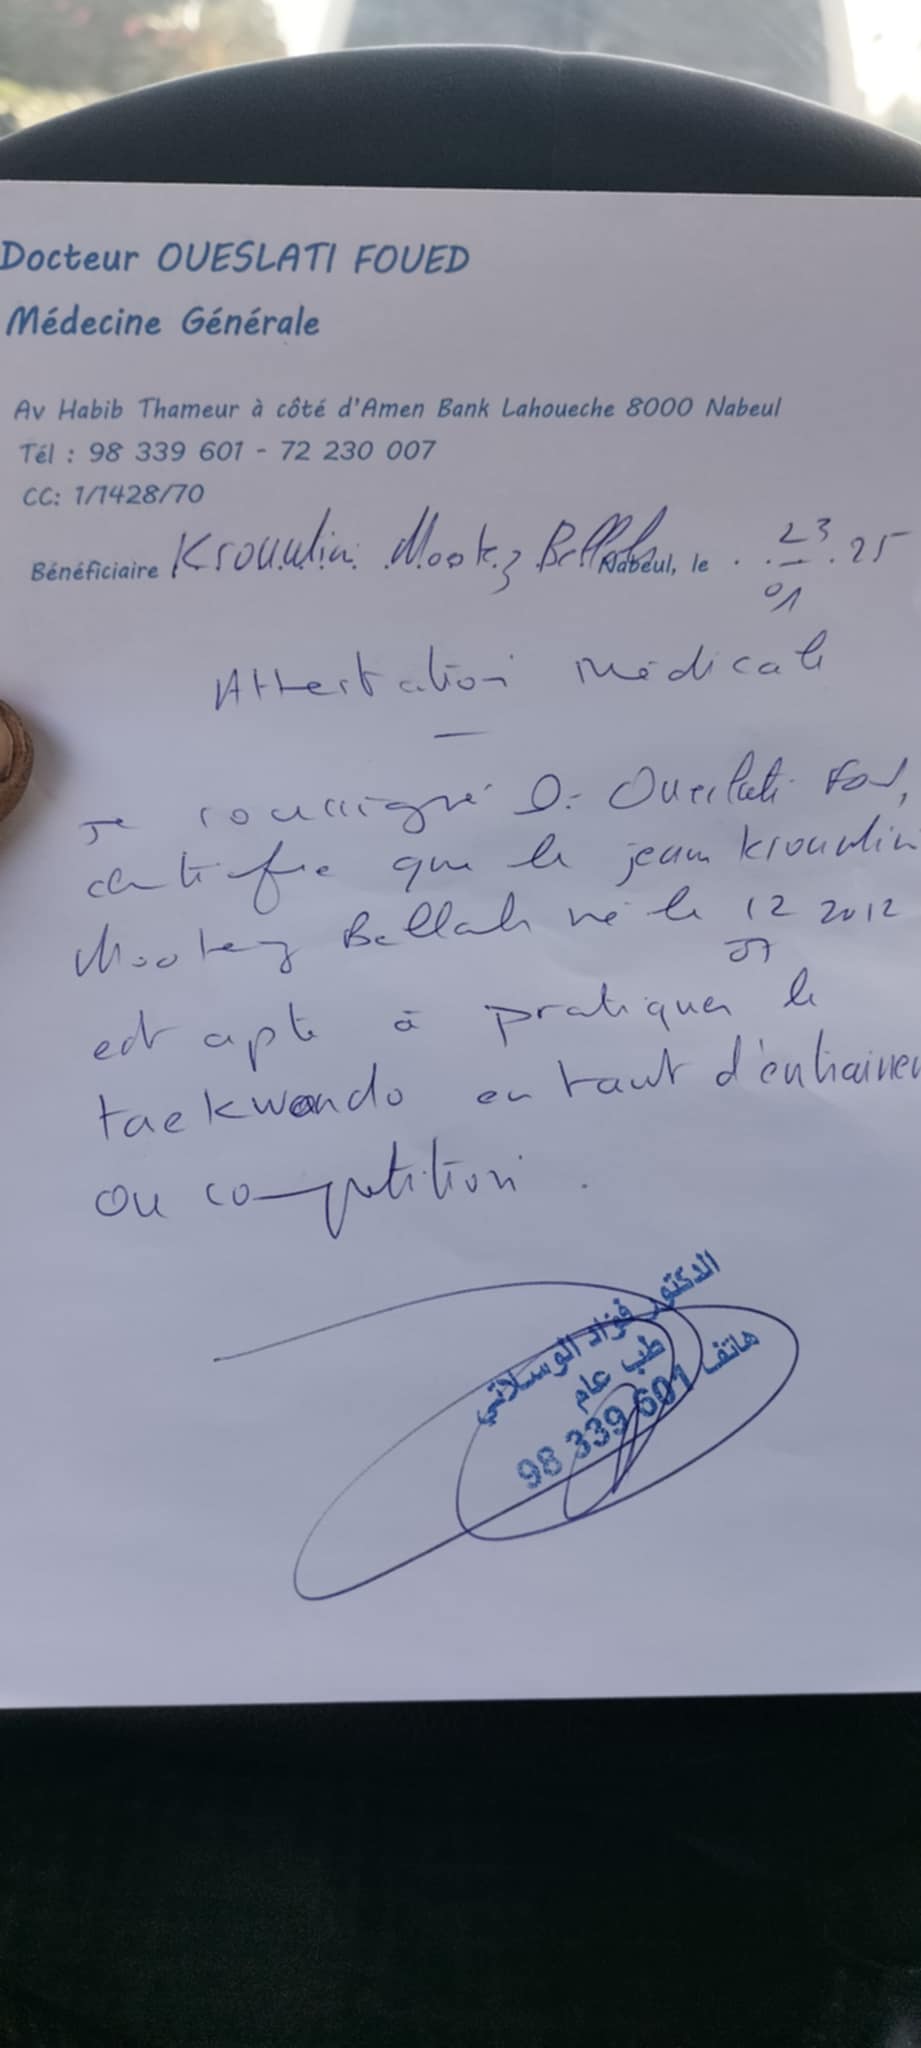 Docteur OUESLATI FOUED
Médecine Générale
Av Habib Thameur à côté d'Amen Bank Lahoueche 8000 Nabeul
Tél : 98 339 601 - 72 230 007
CC: 1/1428/70
Bénéficiaire Mootez Bellah Nabeul, le 23 01 25
Attestation médicale
Je soussigné Dr Oueslati
certifie que le jeune
Mootez Bellah né le 12 07 2012
est apte à pratiquer le
taekwondo en tant d'entrainem
ou compétition .
الدكتور فؤاد الوسلاتي
طب عام
هاتف 98 339 601